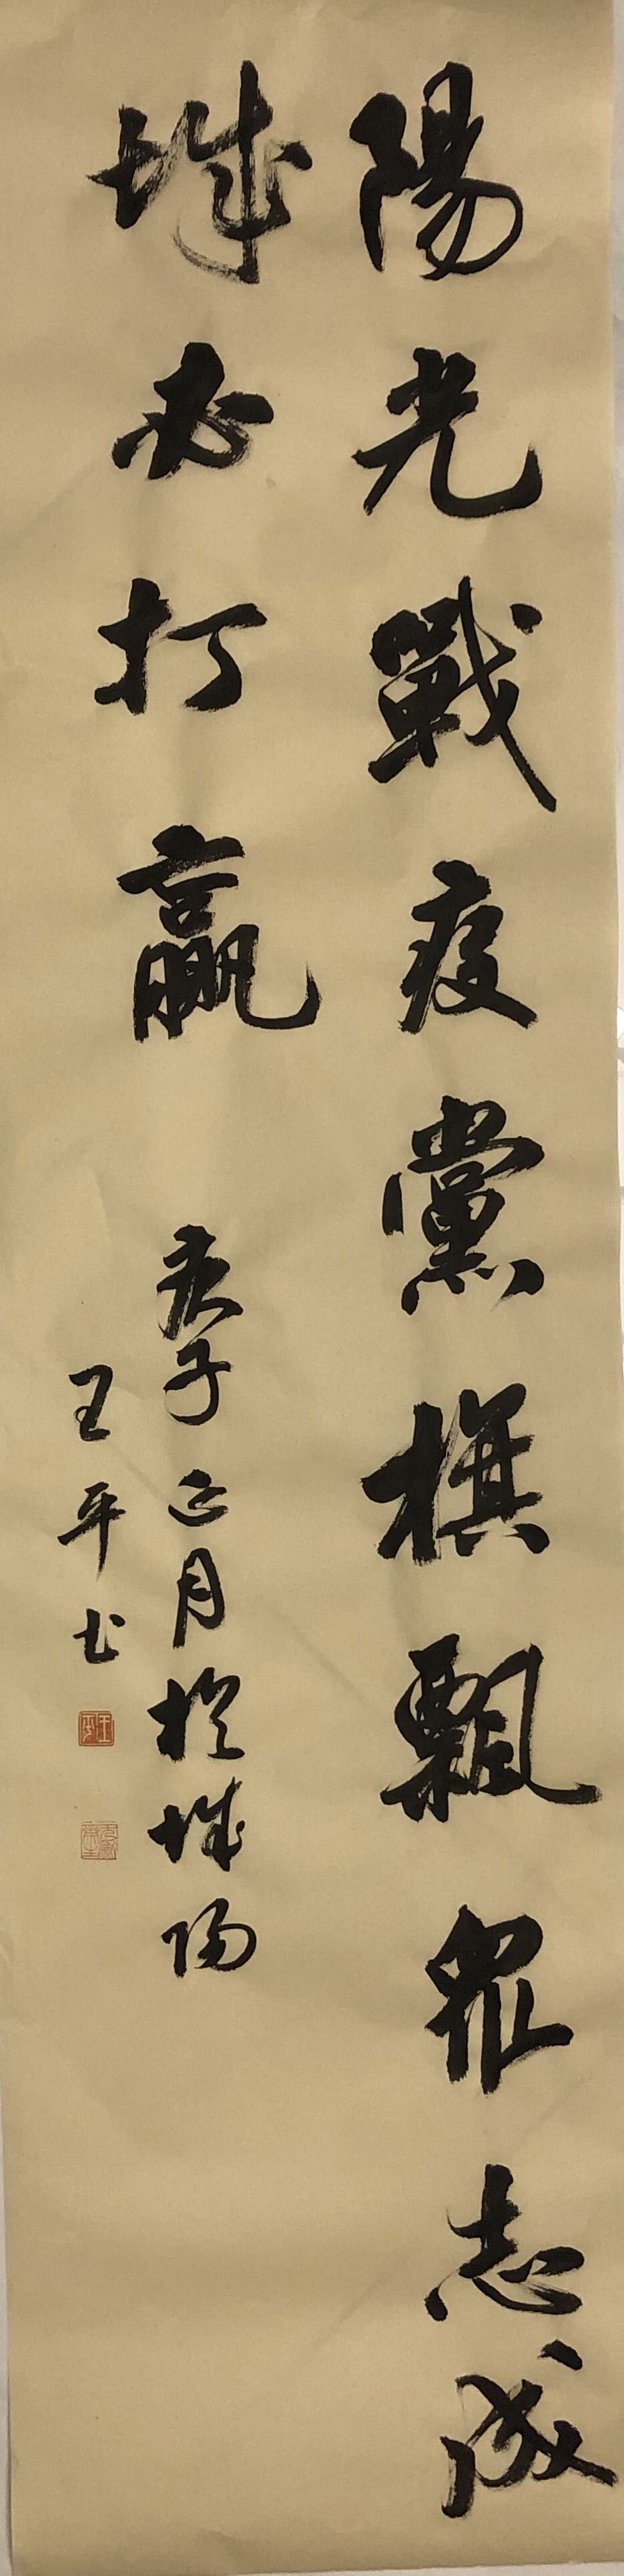 陽光戰疫黨旗飄眾志成
城必打贏
庚子正月於城陽
王平书
王平